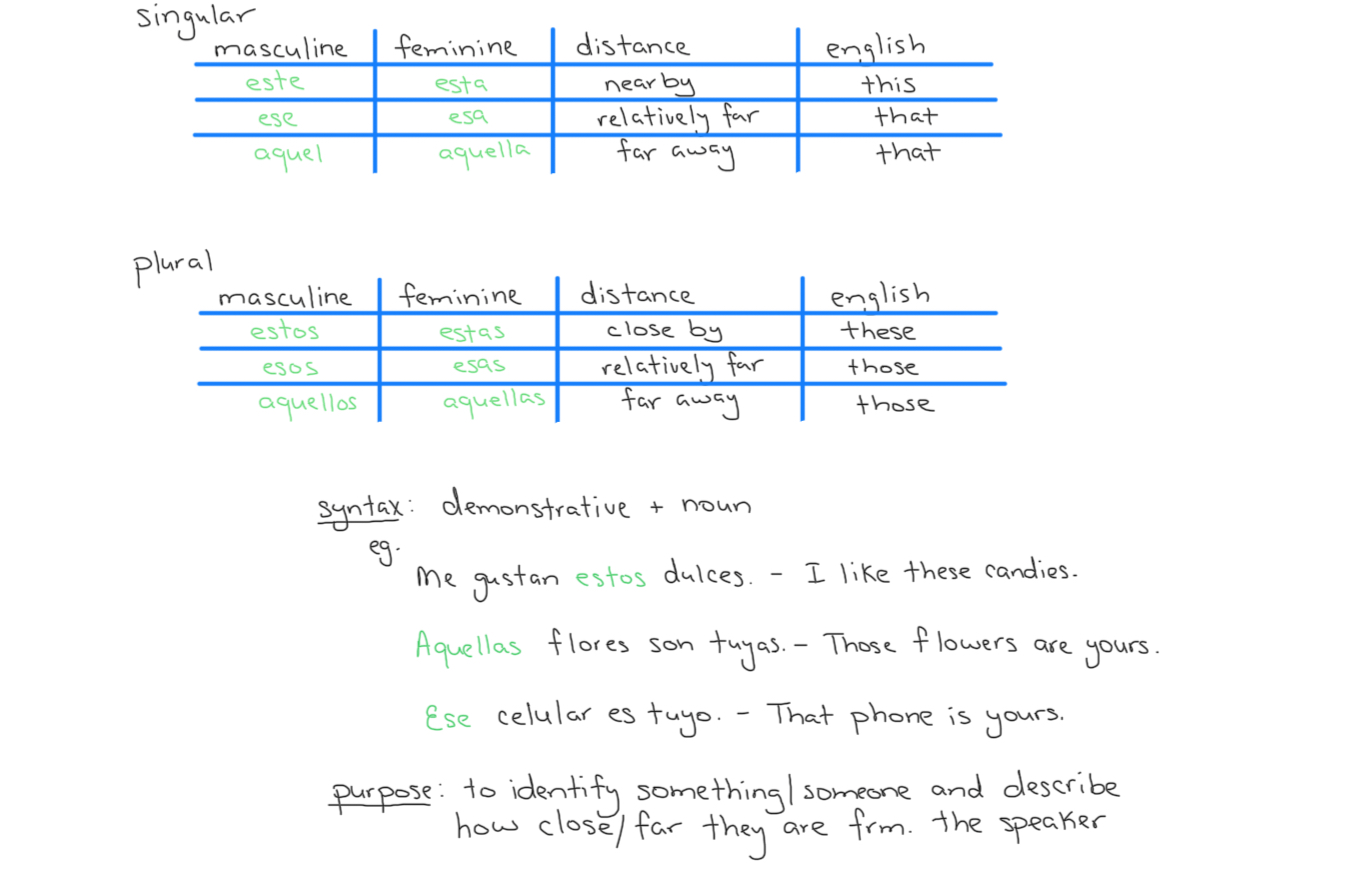 singular
masculine feminine distance english
este esta nearby this
ese esa relatively far that
aquel aquella far away that
plural
masculine feminine distance english
estos estas close by these
esos esas relatively far those
aquellos aquellas far away those
syntax: demonstrative + noun
eg.
Me gustan estos dulces. - I like these candies.
Aquellas flores son tuyas. - Those flowers are yours.
Ese celular es tuyo. - That phone is yours.
purpose: to identify something/someone and describe
how close/far they are frm. the speaker